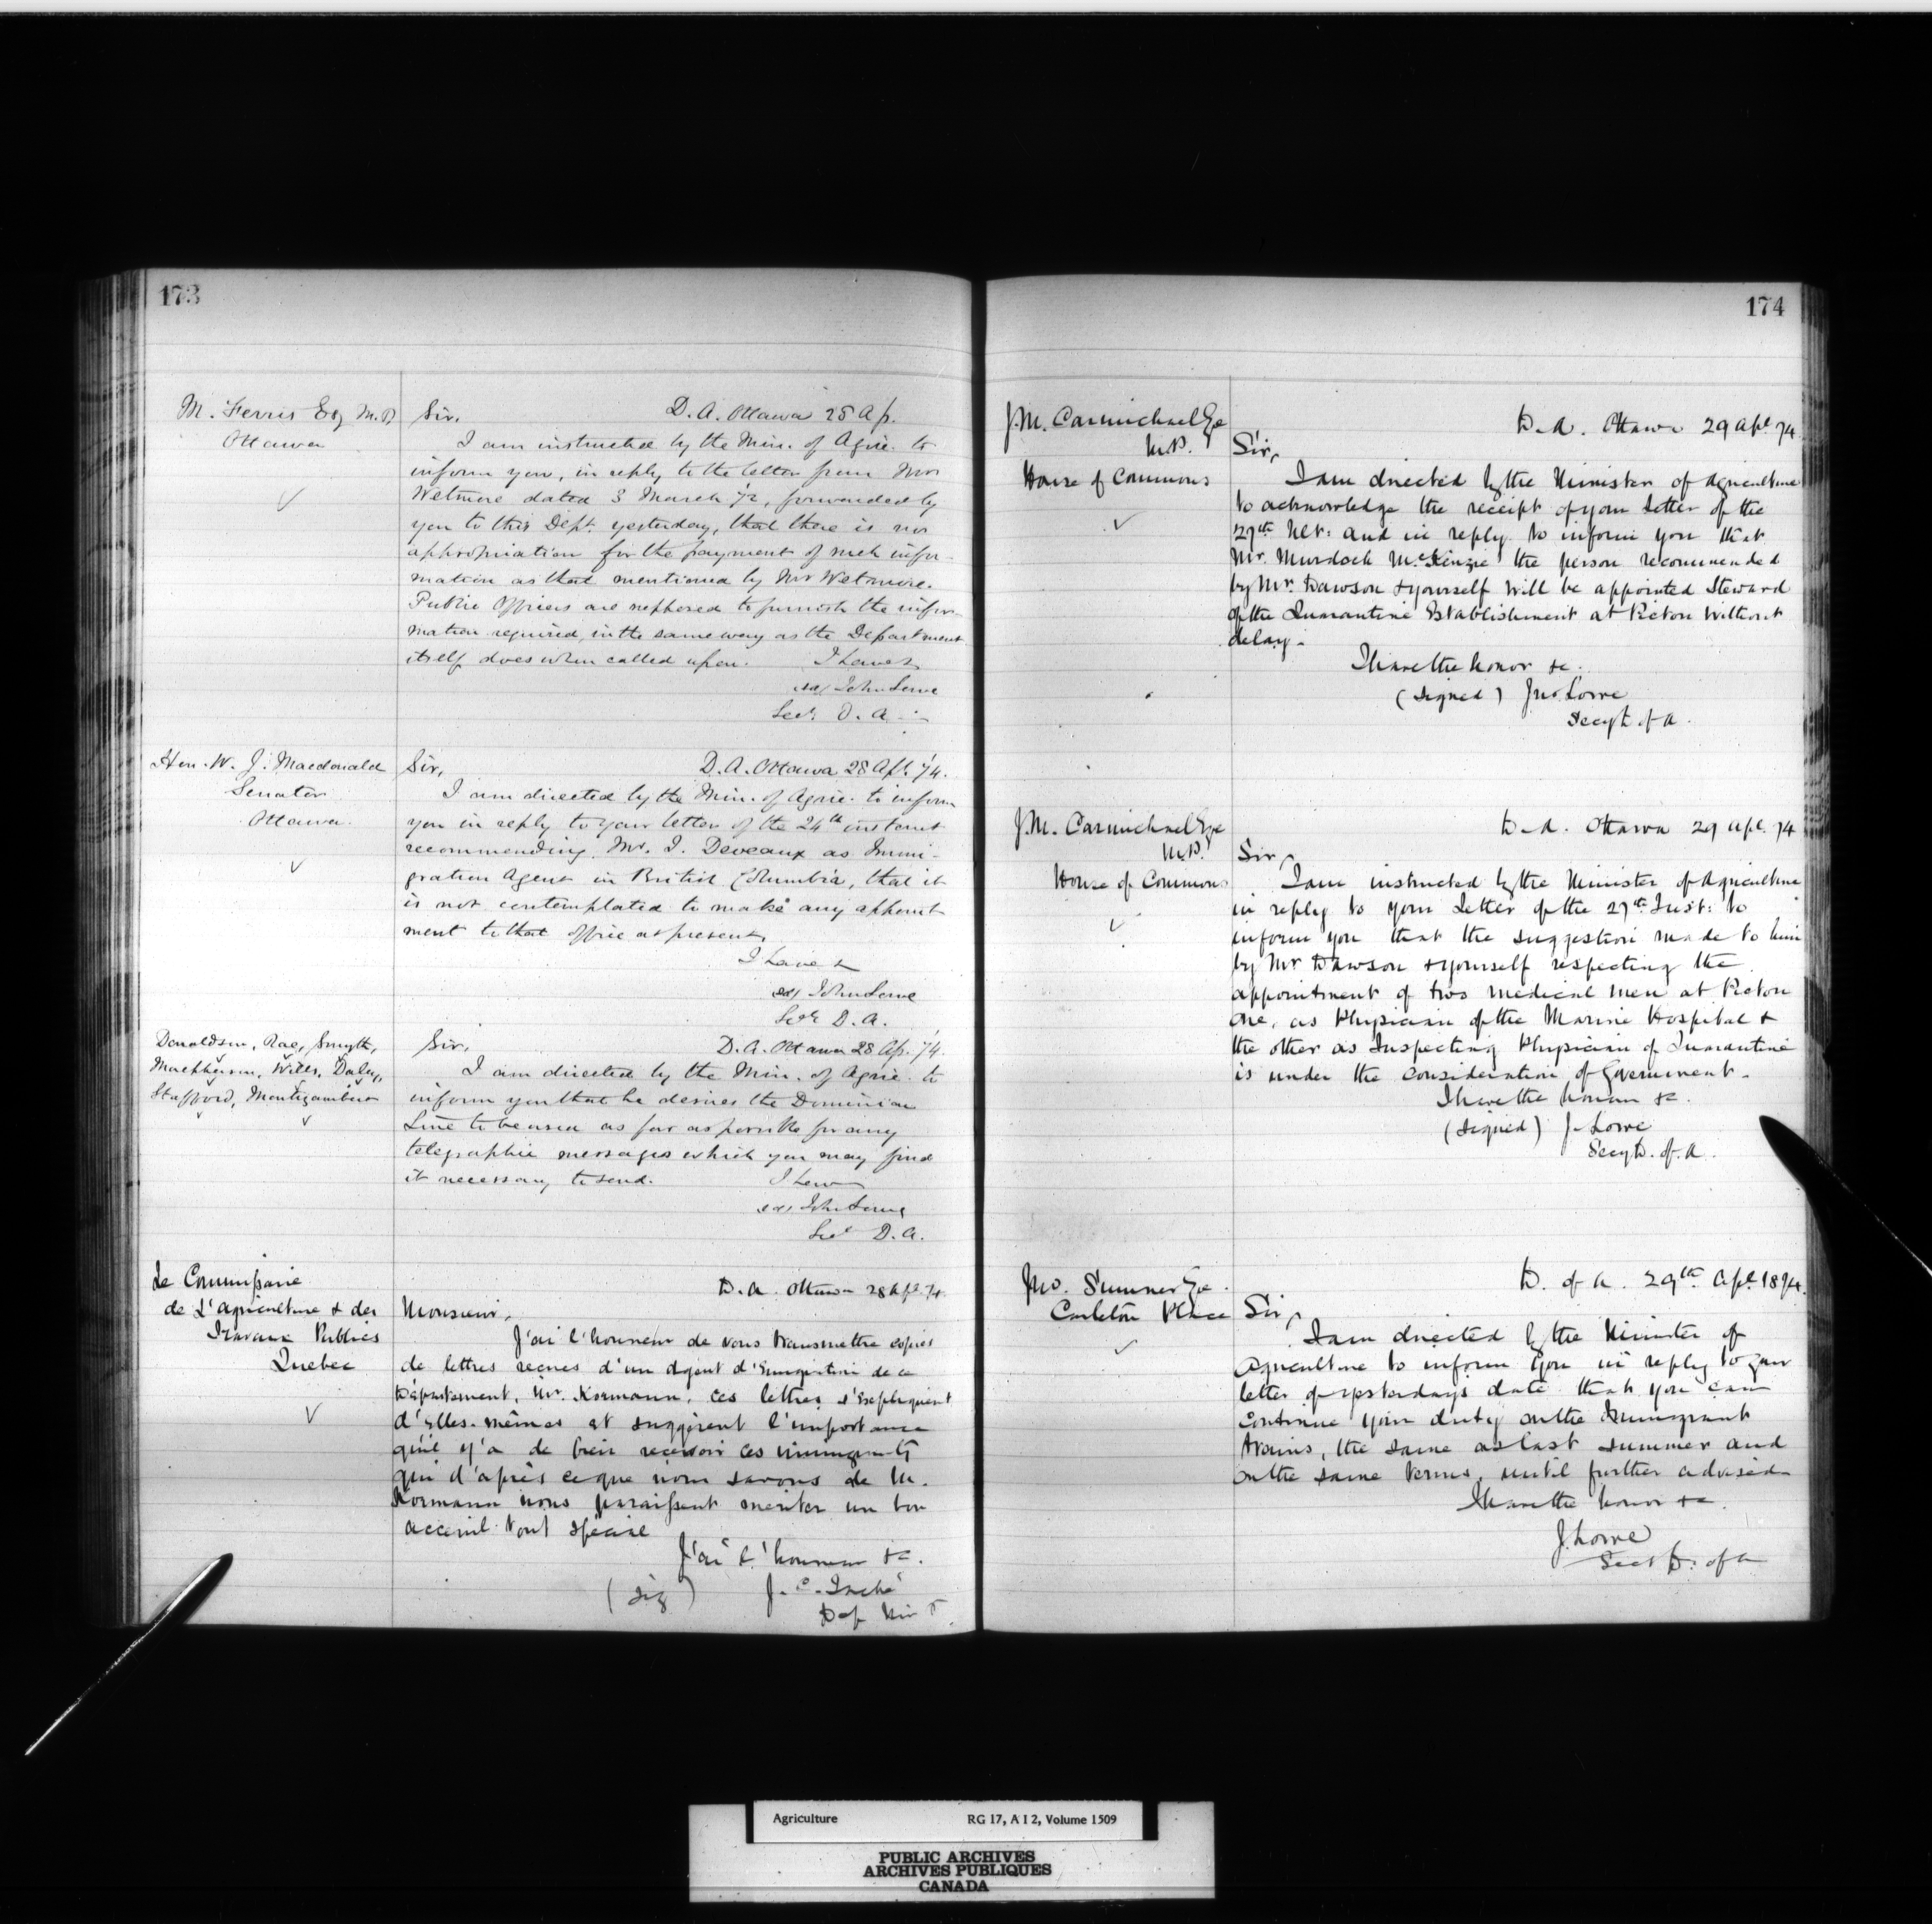 173
M. Ferris Esq M.P
Ottawa
Sir, D.A. Ottawa 28 Ap.
I am instructed by the Min. of Agric. to
inform you, in reply to the letter from Mr
Wetmore dated 3 March /72, forwarded by
you to this Dept. yesterday, that there is no
appropriation for the payment of such infor-
mation as that mentioned by Mr Wetmore.
Public Officers are supposed to furnish the infor-
mation required, in the same way as the Department
itself does when called upon. I have &
sd/ John Lowe
Secy D. A.
Hon. W. J. Macdonald
Senator
Ottawa
Sir, D.A. Ottawa 28 Ap. /74.
I am directed by the Min. of Agric. to inform
you in reply to your letter of the 24th instant
recommending Mr. I. Deveaux as Immi-
gration Agent in British Columbia, that it
is not contemplated to make any appoint
ment to that office at present.
I have &
sd/ John Lowe
Secy D.A.
Donaldson, Rae, Smyth,
Macpherson, Wills, Daley,
Stafford, Montizambert
Sir, D.A. Ottawa 28 Ap. /74.
I am directed by the Min. of Agric. to
inform you that he desires the Dominion
Line to be used as far as possible for any
telegraphic messages which you may find
it necessary to send. I have
sd/ John Lowe
Secy D.A.
Le Commissaire
de L'agriculture & des
Travaux Publics
Quebec
D. A. Ottawa 28 Apl. 74
Monsieur,
J'ai l'honneur de vous transmettre copies
de lettres recues d'un Agent d'Emigration de ce
Département, Mr. Kormann, ces lettres s'expliquent
d'elles-mêmes et suggèrent l'importance
qu'il y'a de bien recevoir ces immigrants
qui d'après ce que nous savons de M.
Kormann nous paraissent meriter un bon
acceuil tout spécial
J'ai l'honneur &c.
(Sig) J. C. Taché
Dep Min
174
J.M. Carmichael Esqe
M.P.
House of Commons
D. A. Ottawa 29 Apl. 74
Sir,
I am directed by the Minister of Agriculture
to acknowledge the receipt of your letter of the
27th Ult: and in reply to inform you that
Mr. Murdock McKenzie the person recommended
by Mr. Dawson & yourself will be appointed Steward
of the Quarantine Establishment at Pictou without
delay.
I have the honor &c.
(signed) Jno Lowe
Secy D. of A.
J.M. Carmichael Esqe
M.P.
House of Commons
D. A. Ottawa 29 Apl. 74
Sir,
I am instructed by the Minister of Agriculture
in reply to your letter of the 27th Inst: to
inform you that the suggestion made to him
by Mr Dawson & yourself respecting the
appointment of two medical men at Pictou
one, as Physician of the Marine Hospital &
the other as Inspecting Physician of Quarantine
is under the consideration of Government.
I have the honour &c.
(signed) J. Lowe
Secy D. of A.
Jno. Sumner Esqe.
Carleton Place
D. of A. 29th Apl. 1874.
Sir,
I am directed by the Minister of
Agriculture to inform you in reply to your
letter of yesterdays date that you can
continue your duty on the Immigrant
trains, the same as last summer and
on the same terms, until further advised
I have the honor &c.
J. Lowe
Sect D. of A
Agriculture RG 17, A I 2, Volume 1509
PUBLIC ARCHIVES
ARCHIVES PUBLIQUES
CANADA